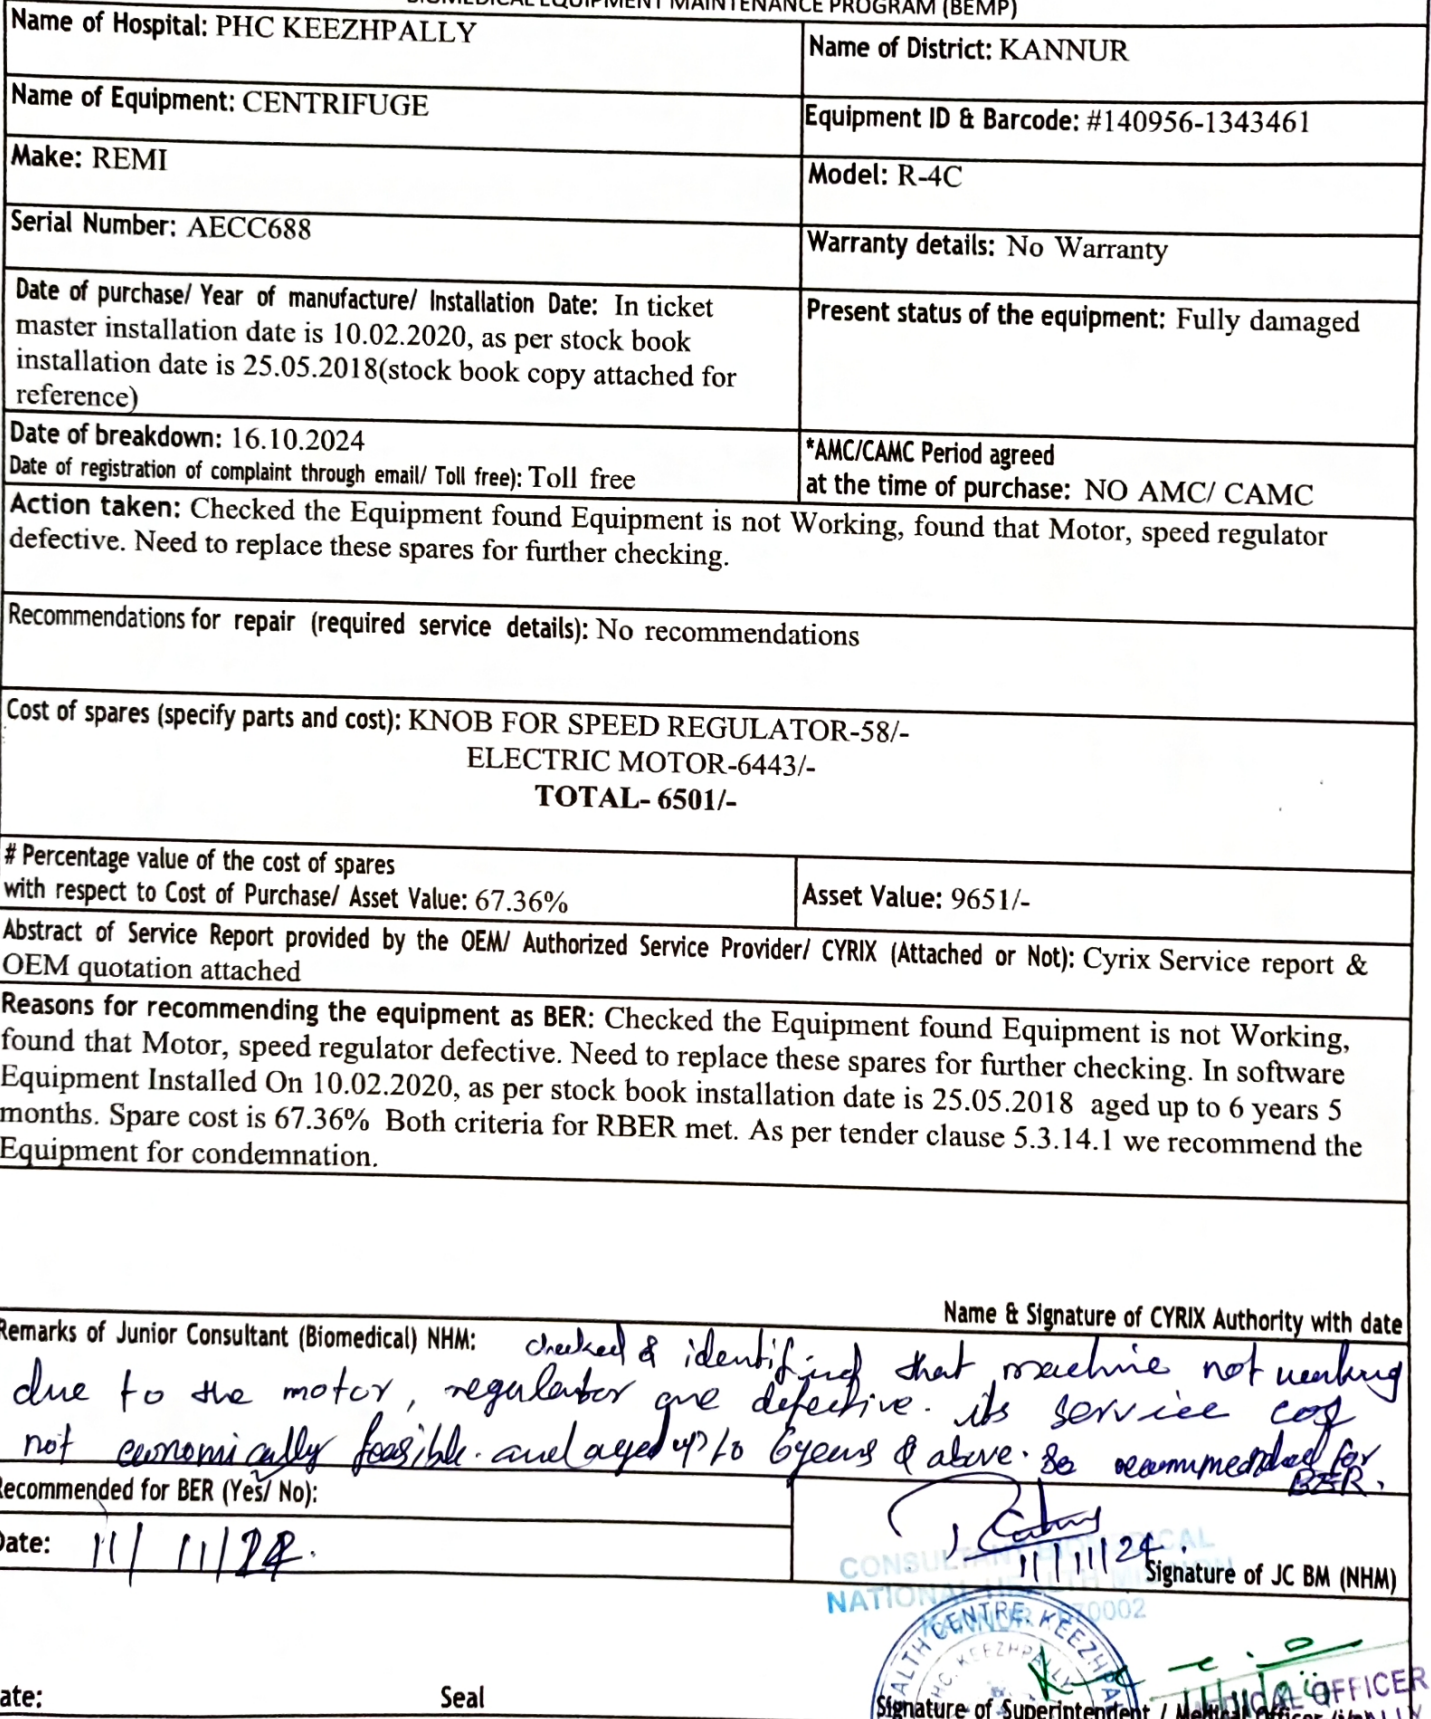 BIOMEDICAL EQUIPMENT MAINTENANCE PROGRAM (BEMP)
Name of Hospital: PHC KEEZHPALLY
Name of District: KANNUR
Name of Equipment: CENTRIFUGE
Equipment ID & Barcode: #140956-1343461
Make: REMI
Model: R-4C
Serial Number: AECC688
Warranty details: No Warranty
Date of purchase/ Year of manufacture/ Installation Date: In ticket
master installation date is 10.02.2020, as per stock book
installation date is 25.05.2018(stock book copy attached for
reference)
Present status of the equipment: Fully damaged
Date of breakdown: 16.10.2024
Date of registration of complaint through email/ Toll free): Toll free
*AMC/CAMC Period agreed
at the time of purchase: NO AMC/ CAMC
Action taken: Checked the Equipment found Equipment is not Working, found that Motor, speed regulator
defective. Need to replace these spares for further checking.
Recommendations for repair (required service details): No recommendations
Cost of spares (specify parts and cost): KNOB FOR SPEED REGULATOR-58/-
ELECTRIC MOTOR-6443/-
TOTAL- 6501/-
# Percentage value of the cost of spares
with respect to Cost of Purchase/ Asset Value: 67.36%
Asset Value: 9651/-
Abstract of Service Report provided by the OEM/ Authorized Service Provider/ CYRIX (Attached or Not): Cyrix Service report &
OEM quotation attached
Reasons for recommending the equipment as BER: Checked the Equipment found Equipment is not Working,
found that Motor, speed regulator defective. Need to replace these spares for further checking. In software
Equipment Installed On 10.02.2020, as per stock book installation date is 25.05.2018 aged up to 6 years 5
months. Spare cost is 67.36% Both criteria for RBER met. As per tender clause 5.3.14.1 we recommend the
Equipment for condemnation.
Name & Signature of CYRIX Authority with date
Remarks of Junior Consultant (Biomedical) NHM: checked & identified that machine not working
due to the motor, regulator are defective. its service cost
not economically feasible. and aged up to 6 years & above. So recommended for
BER.
Recommended for BER (Yes/ No):
Date: 11/11/24.
11/11/24.
Signature of JC BM (NHM)
CONSULTANT BIOMEDICAL
NATIONAL HEALTH MISSION
KANNUR 670002
HEALTH CENTRE KEEZHPA
PHC. KEEZHPALLY
MEDICAL OFFICER
Date:
Seal
Signature of Superintendent / Medical Officer